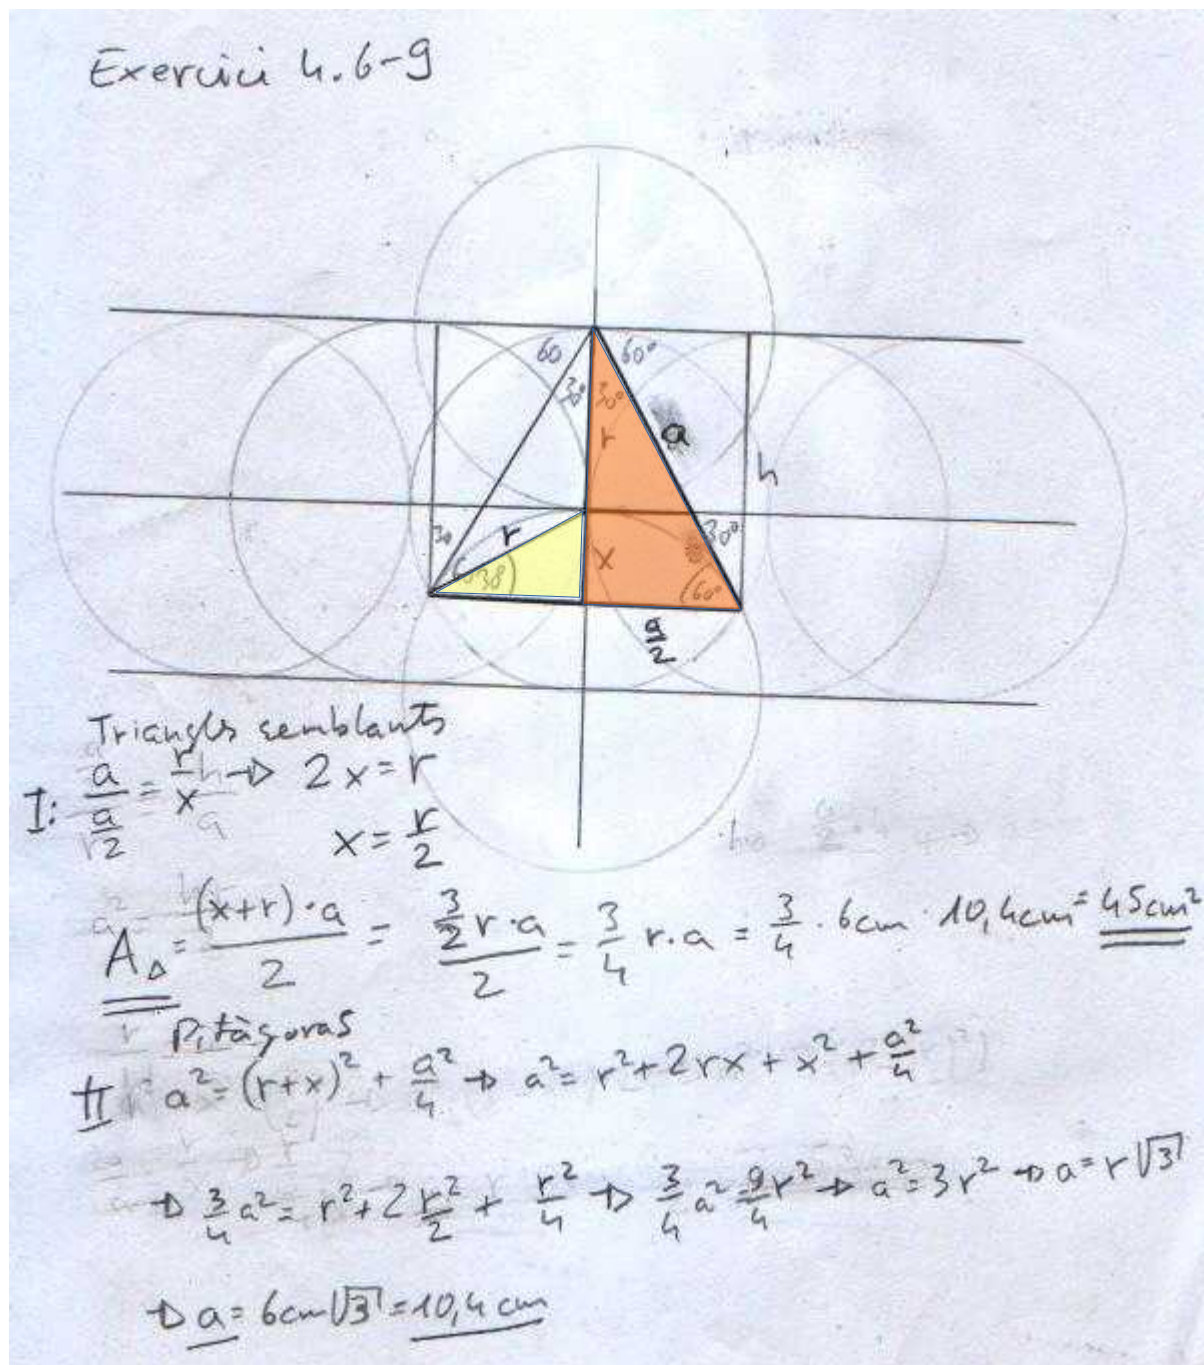 Exercici 4.6-9
60 60°
30° 30°
r a
h
30 r 30°
x
60°
a/2
Triangles semblants
I: a/(a/2) = r/x → 2x = r
x = r/2
A△ = (x+r)·a/2 = (3/2 r·a)/2 = 3/4 r·a = 3/4 · 6cm · 10,4cm = 45cm²
Pitàgoras
II a² = (r+x)² + a²/4 → a² = r² + 2rx + x² + a²/4
→ 3/4 a² = r² + 2 r²/2 + r²/4 → 3/4 a² = 9/4 r² → a² = 3r² → a = r√3
→ a = 6cm√3 = 10,4 cm